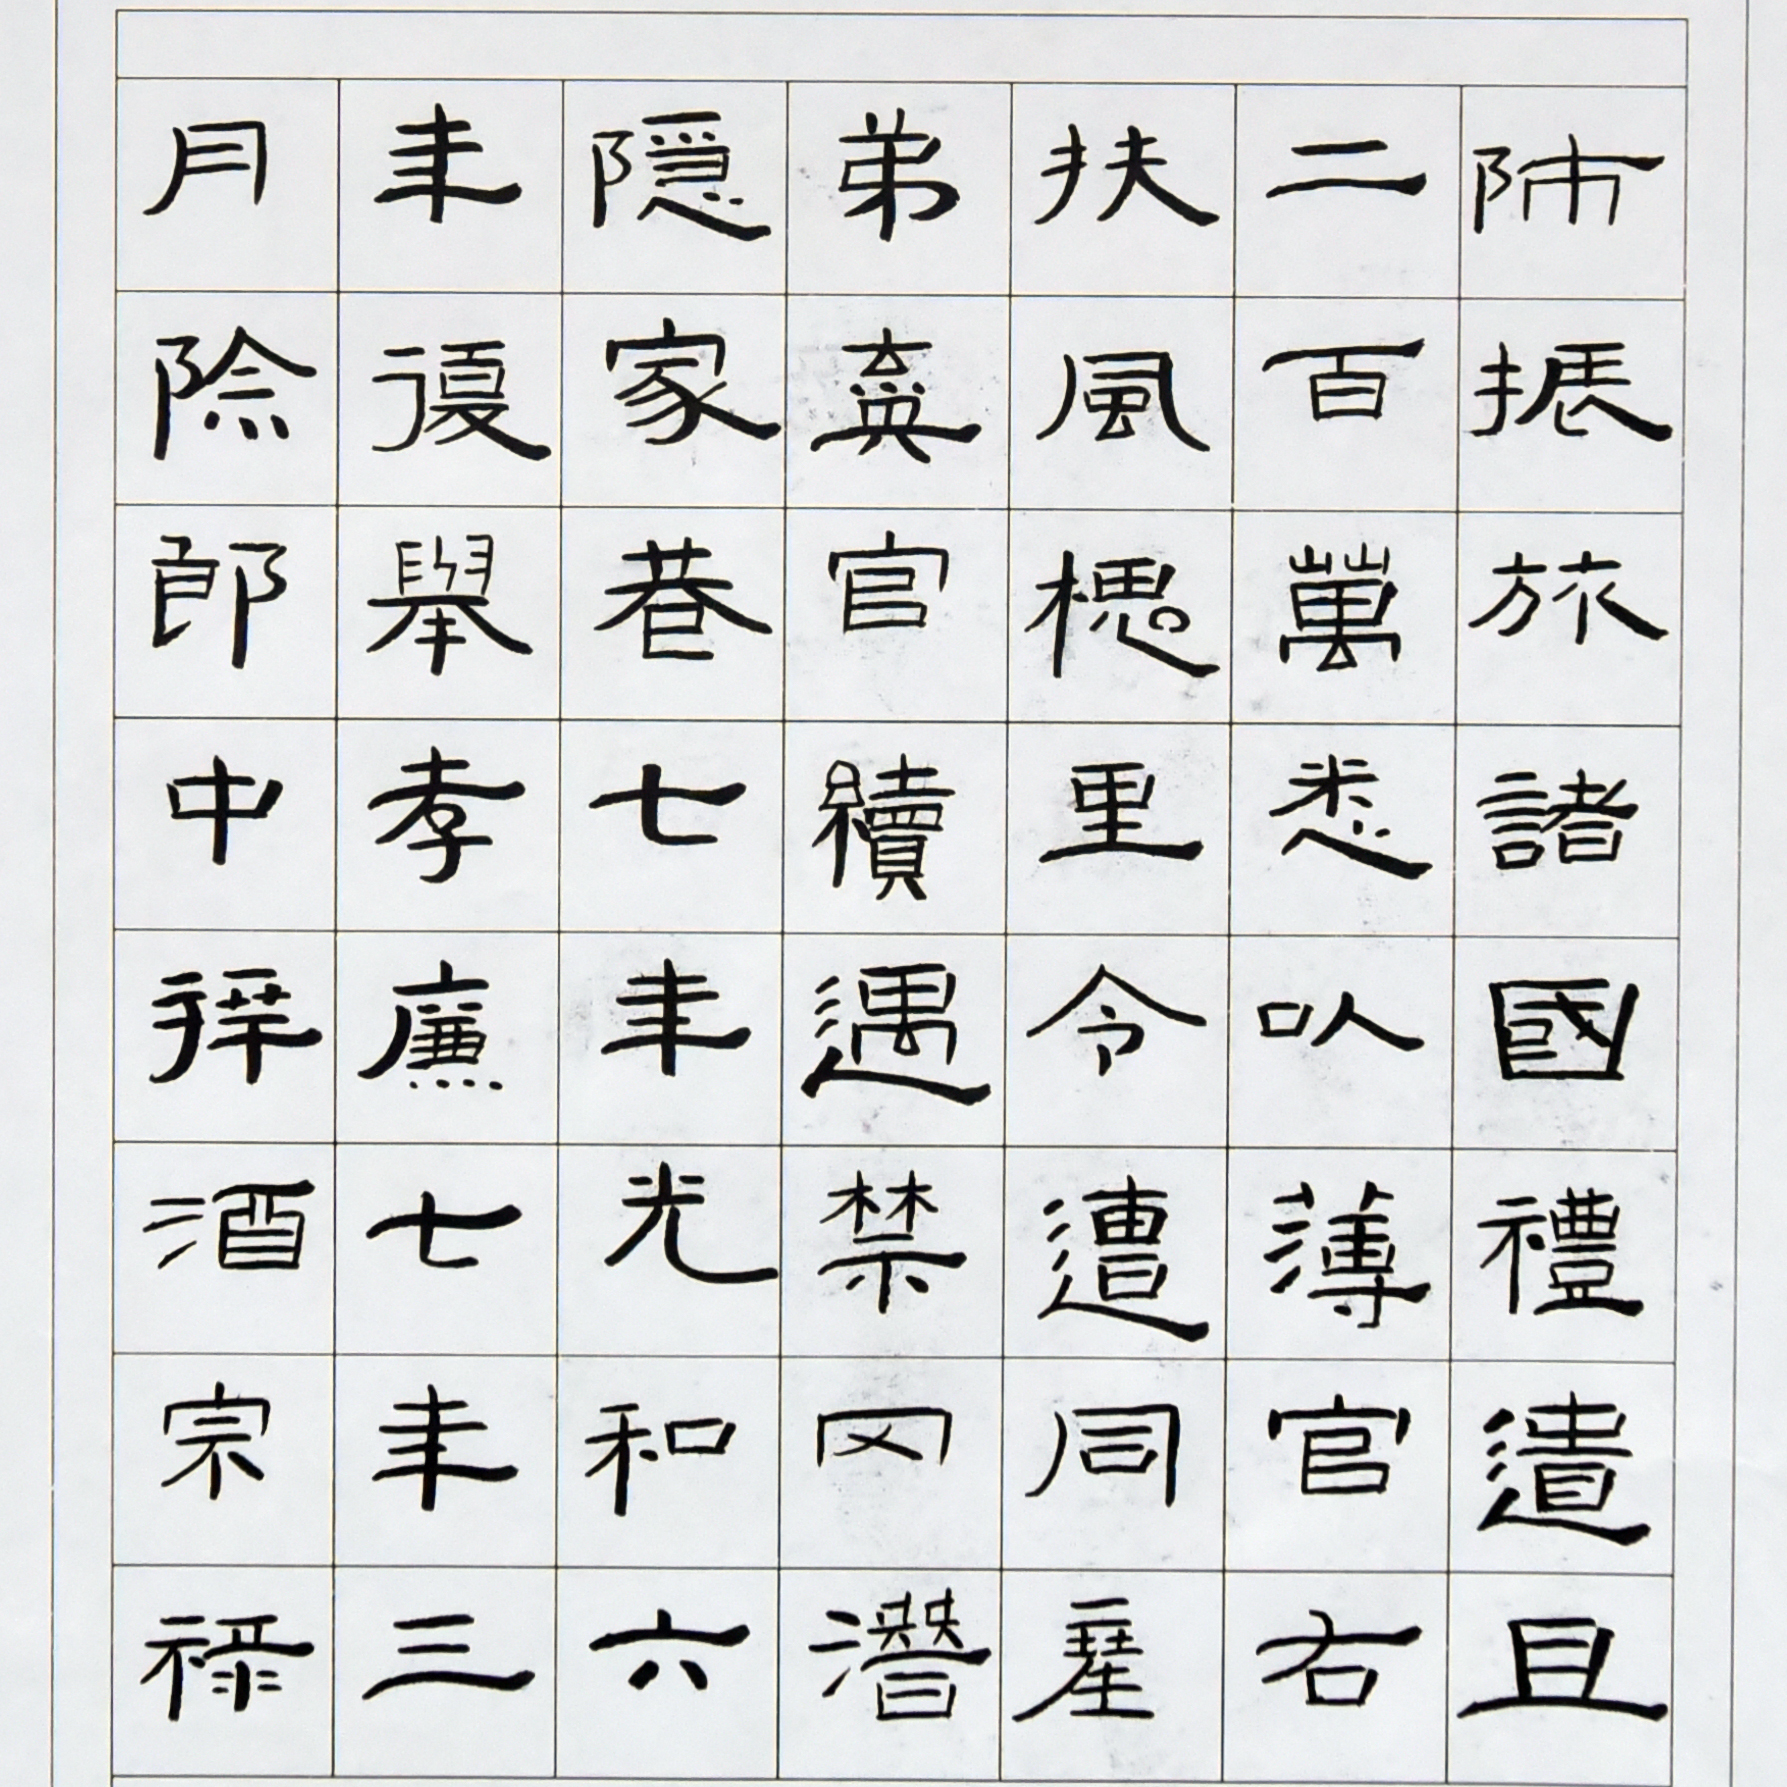 師振旅諸國禮遺且
二百萬悉以薄官右
扶風槐里令遭同產
弟憂官續遇禁冈潛
隱家巷七年光和六
年復舉孝廉七年三
月除郎中拜酒宗祿